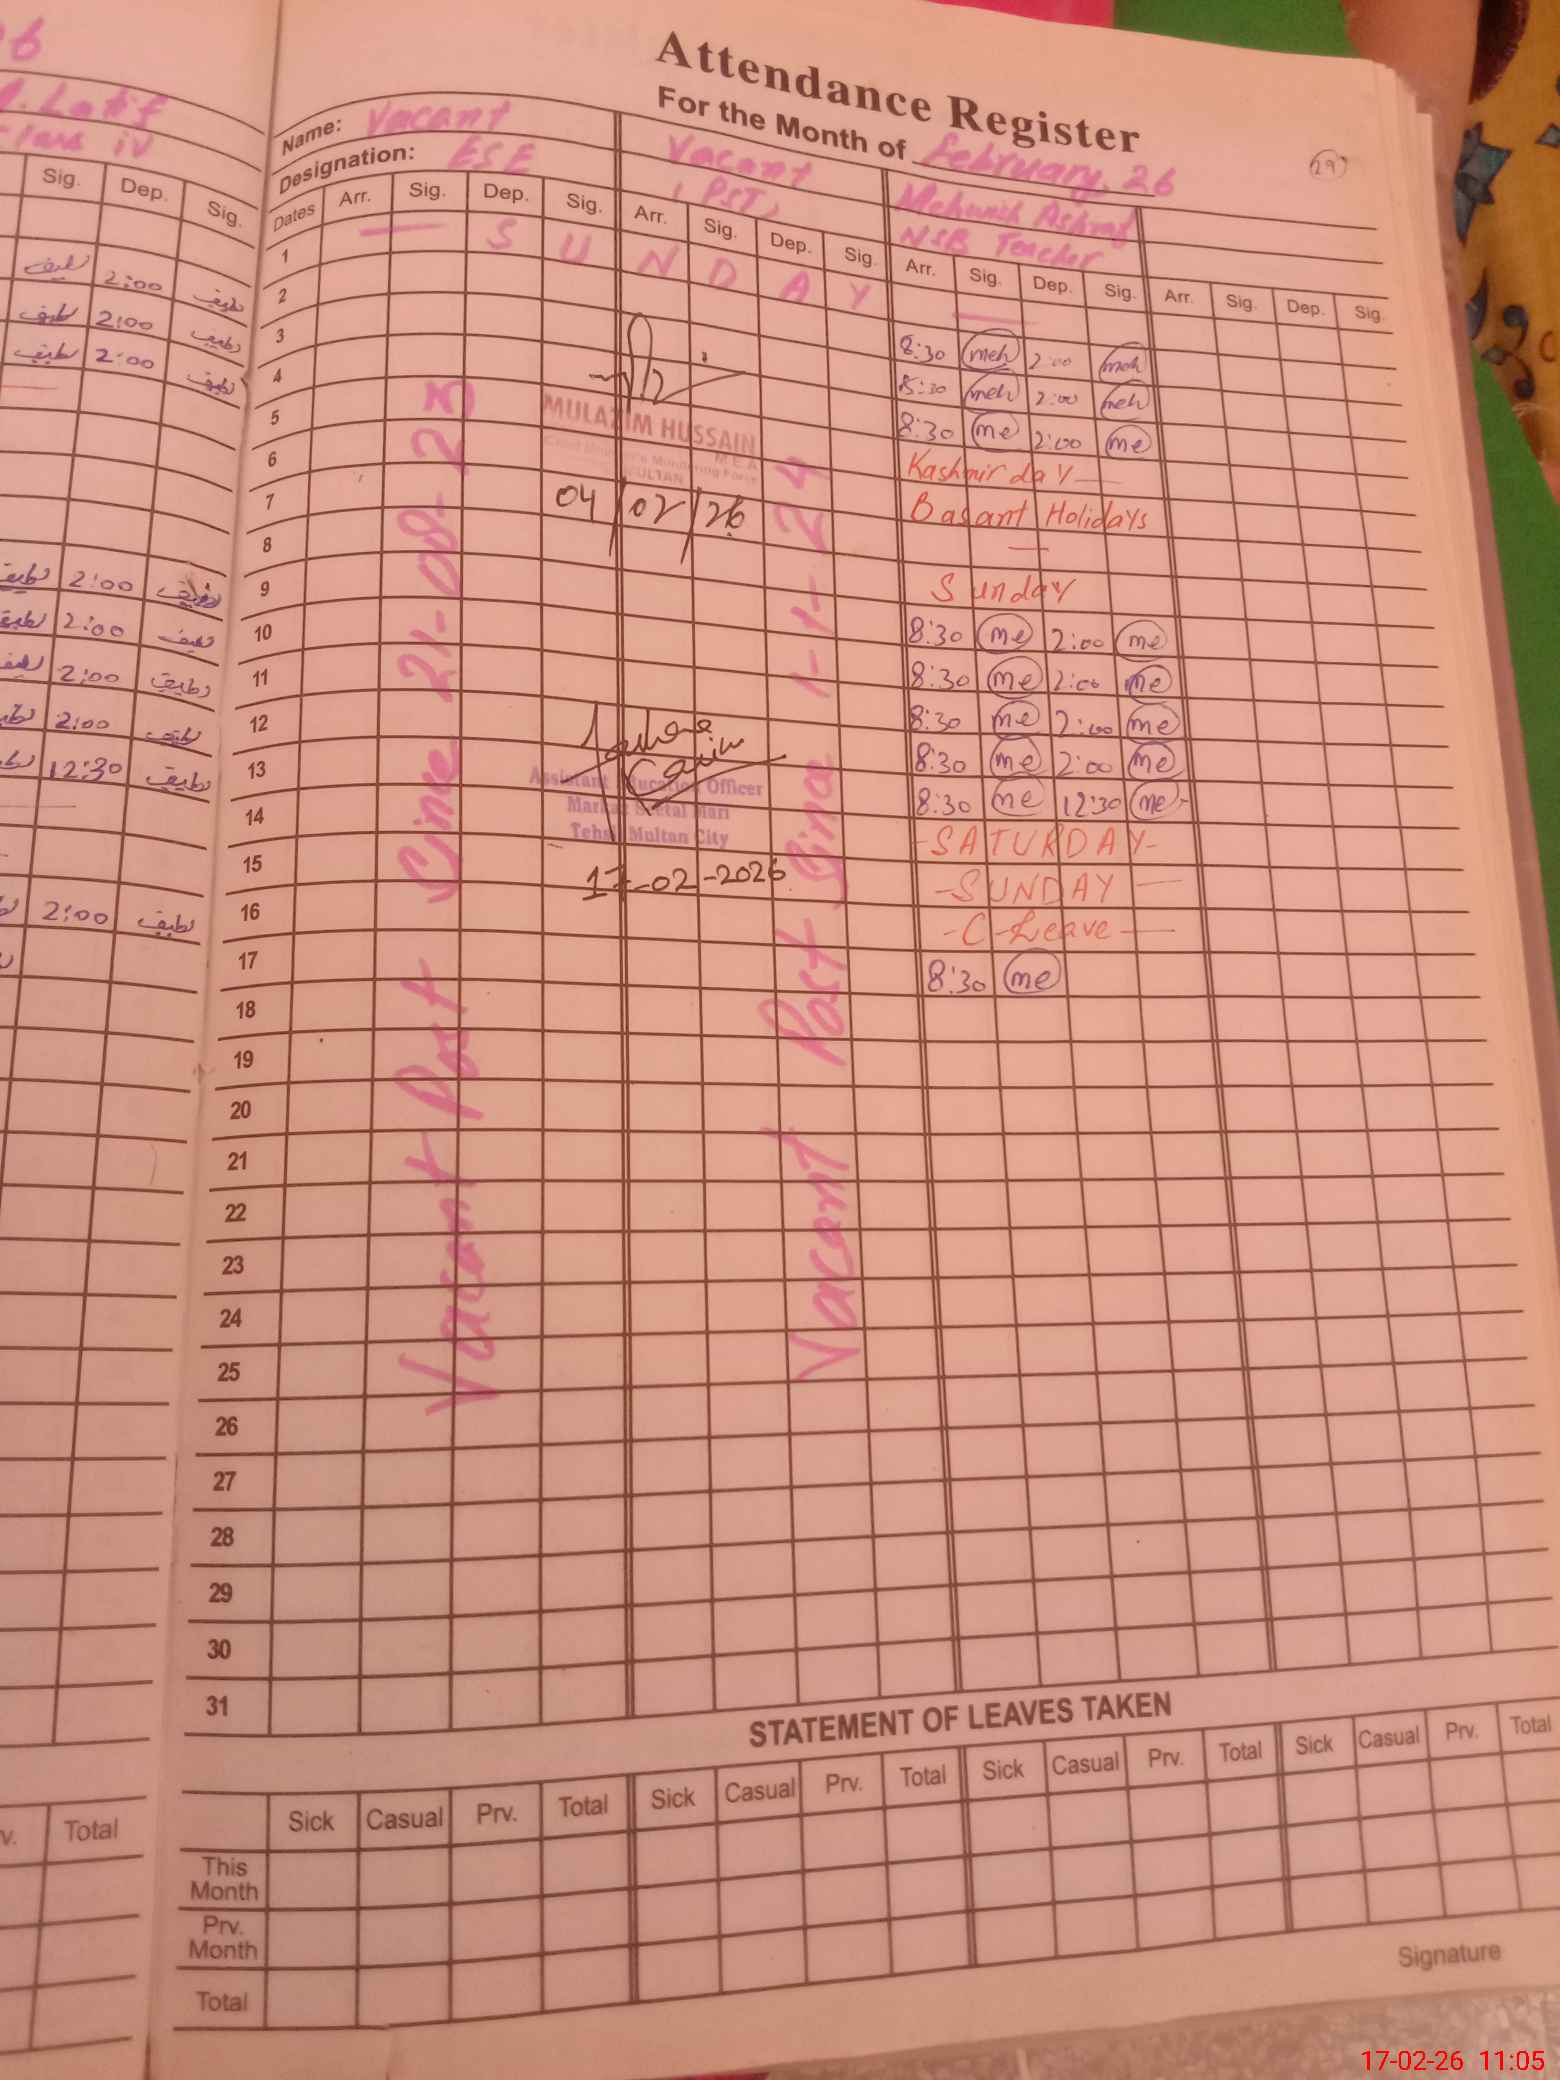 Attendance Register
For the Month of February, 26
29
Name: Vacant
Designation: ESE
Vacant
(PST)
Mehwish Ashraf
NSB Teacher
Dates Arr. Sig. Dep. Sig. Arr. Sig. Dep. Sig. Arr. Sig. Dep. Sig. Arr. Sig. Dep. Sig.
1 S U N D A Y
2 8:30 meh 2:00 meh
3 8:30 meh 2:00 meh
4 8:30 me 2:00 me
5 Kashmir day
6 Basant Holidays
7
8 Sunday
9 8:30 me 2:00 me
10 8:30 me 2:00 me
11 8:30 me 2:00 me
12 8:30 me 2:00 me
13 8:30 me 12:30 me
14 -SATURDAY-
15 -SUNDAY-
16 -C-Leave-
17 8:30 me
18
19
20
21
22
23
24
25
26
27
28
29
30
31
Vacant Post Since 21-08-23
Vacant Post Since 1-1-24
MULAZIM HUSSAIN
M.E.A
Chief Minister's Monitoring Force
MULTAN
04/02/26
Assistant Education Officer
Markaz Seetal Mari
Tehsil Multan City
17-02-2026
STATEMENT OF LEAVES TAKEN
Sick Casual Prv. Total Sick Casual Prv. Total Sick Casual Prv. Total Sick Casual Prv. Total
This Month
Prv. Month
Total
Signature
M. Latif
Class iv
Sig. Dep. Sig.
لطیف 2:00 لطیف
لطیف 2:00 لطیف
لطیف 2:00 لطیف
لطیف 2:00 لطیف
لطیف 2:00 لطیف
لطیف 2:00 لطیف
لطیف 2:00 لطیف
لطیف 12:30 لطیف
2:00 لطیف
Total
17-02-26 11:05